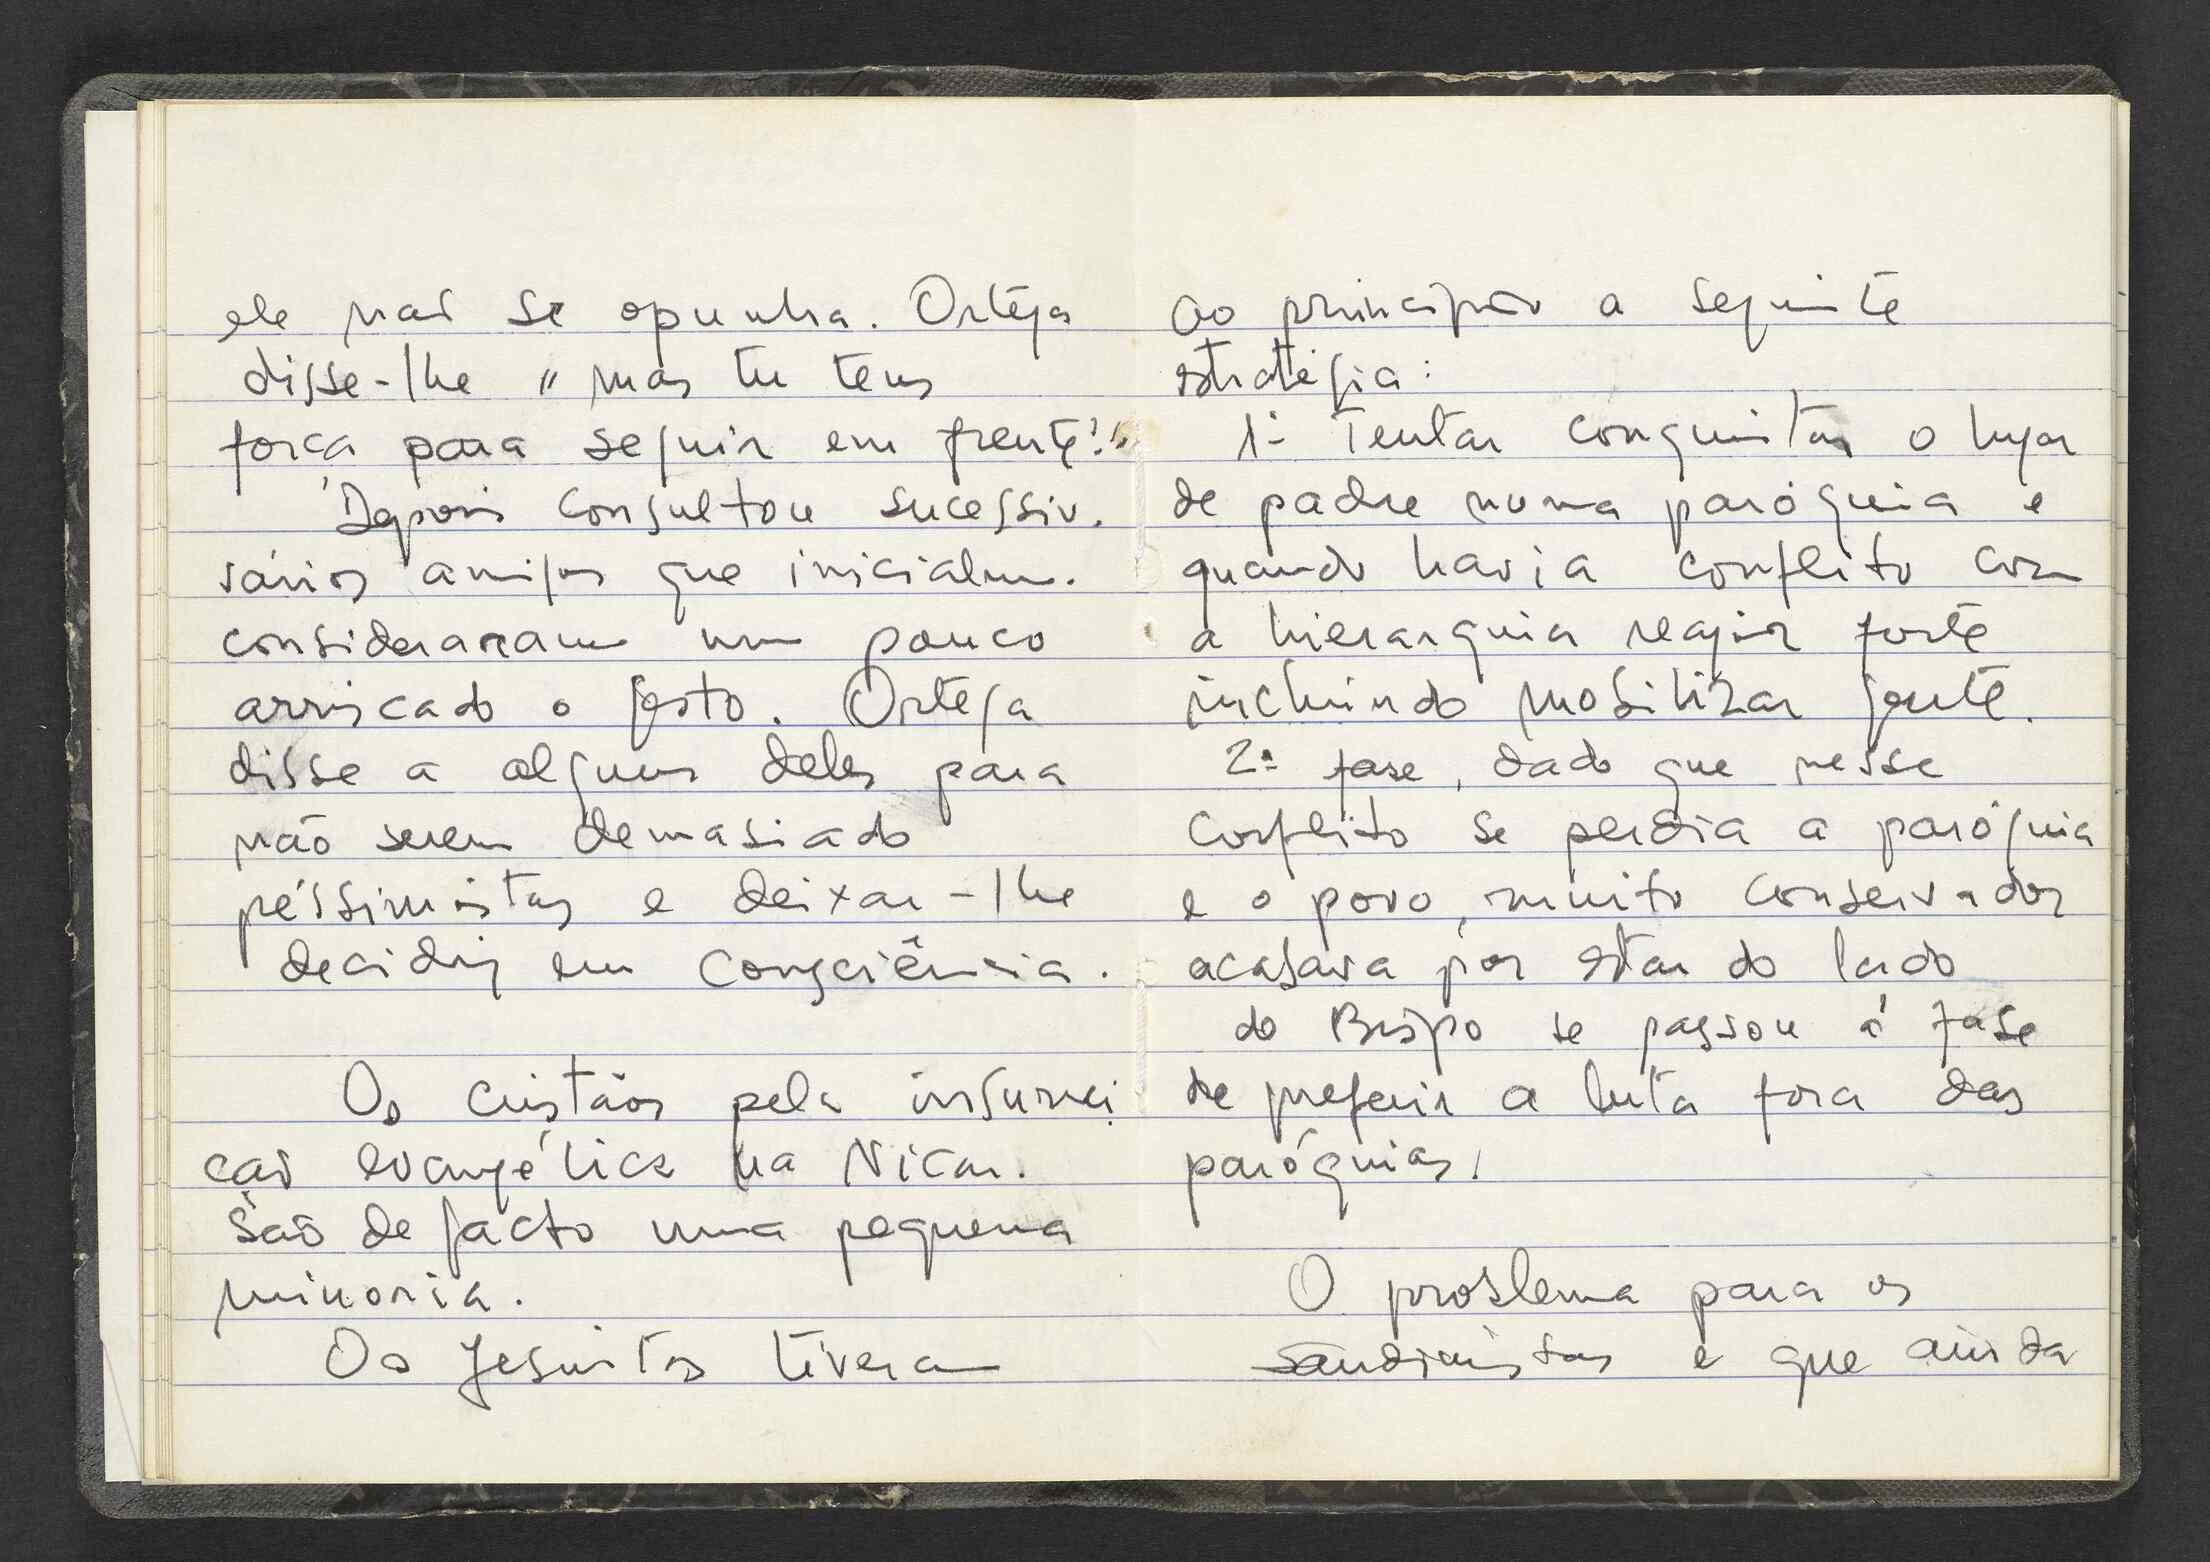 ele não se opunha. Ortega
disse-lhe "mas tu tens
força para seguir em frente?"
Depois consultou sucessiv.
vários amigos que inicialm.
consideraram um pouco
arriscado o gesto. Ortega
disse a alguns deles para
não serem demasiado
péssimistas e deixar-lhe
decidir em consciência.
Os cristãos pela insurrei
ção evangélica na Nicar.
são de facto uma pequena
minoria.
Os Jesuitas tiveram
ao princípio a seguinte
estratégia:
1ª Tentar conquistar o lugar
de padre numa paróquia e
quando havia conflito com
a hierarquia reagir forte
incluindo mobilizar gente.
2ª fase, dado que nesse
conflito se perdia a paróquia
e o povo, muito conservador
acabava por estar do lado
do Bispo se passou á fase
de preferir a luta fora das
paróquias.
O problema para os
sandinistas é que ainda